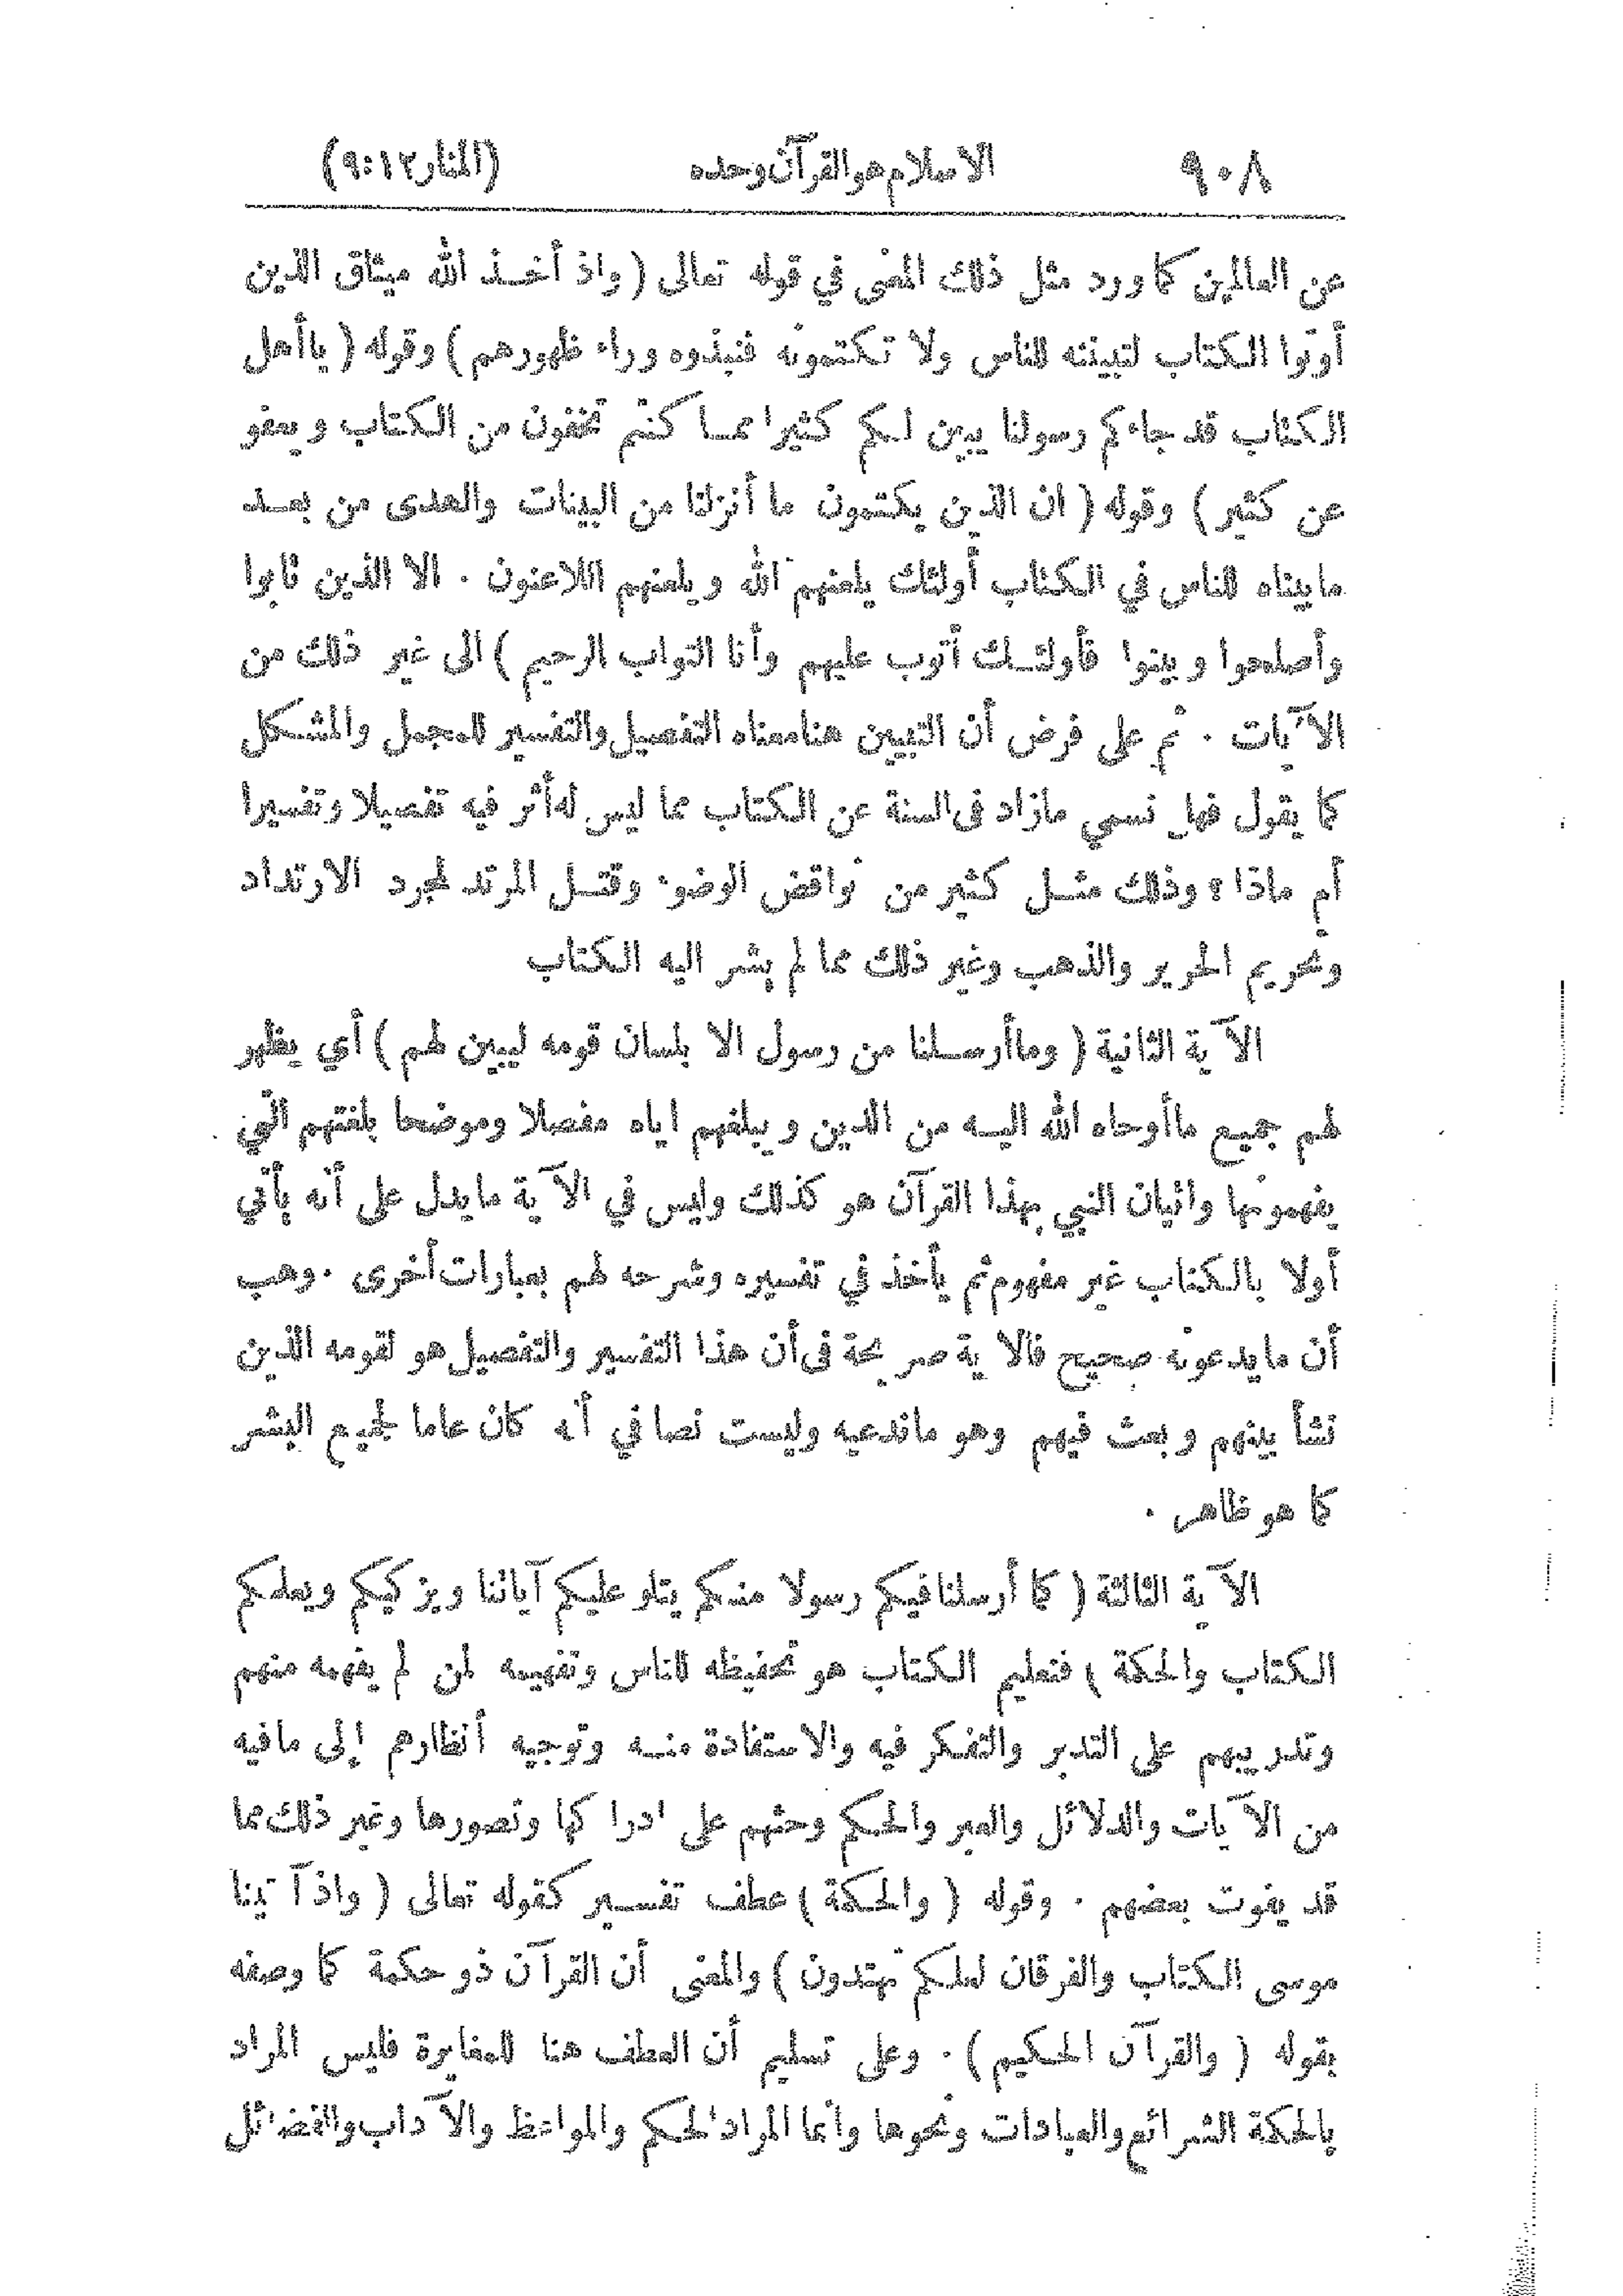 ٩٠٨ الاسلام هو القرآن وحده (المنار ٩:١٢)
عن العالمين كما ورد مثل ذلك المعنى في قوله تعالى ( واذ أخذ الله ميثاق الذين
أوتوا الكتاب لتبيننه للناس ولا تكتمونه فنبذوه وراء ظهورهم ) وقوله ( ياأهل
الكتاب قد جاءكم رسولنا يبين لكم كثيرا مما كنتم تخفون من الكتاب ويعفو
عن كثير ) وقوله ( ان الذين يكتمون ما أنزلنا من البينات والهدى من بعد
مابيناه للناس في الكتاب أولئك يلعنهم الله ويلعنهم اللاعنون . الا الذين تابوا
وأصلحوا وبينوا فأولئك أتوب عليهم وأنا التواب الرحيم ) الى غير ذلك من
الآيات . ثم على فرض أن التبيين هنا معناه التفصيل والتفسير للمجمل والمشكل
كما يقول فهل نسمي مازاد في السنة عن الكتاب مما ليس له أثر فيه تفصيلا وتفسيرا
أم ماذا ؟ وذلك مثل كثير من نواقض الوضوء وقتل المرتد لمجرد الارتداد
وتحريم الحرير والذهب وغير ذلك مما لم يشر اليه الكتاب
الآية الثانية ( وماأرسلنا من رسول الا بلسان قومه ليبين لهم ) أي يظهر
لهم جميع ماأوحاه الله اليه من الدين ويبلغهم اياه مفصلا وموضحا بلغتهم التي
يفهمونها واتيان النبي بهذا القرآن هو كذلك وليس في الآية مايدل على أنه يأتي
أولا بالكتاب غير مفهوم ثم يأخذ في تفسيره وشرحه لهم بعبارات أخرى . وهب
أن مايدعونه صحيح فالآية صريحة في أن هذا التفسير والتفصيل هو لقومه الذين
نشأ بينهم وبعث فيهم وهو ماندعيه وليست نصا في أنه كان عاما لجميع البشر
كما هو ظاهر .
الآية الثالثة ( كما أرسلنا فيكم رسولا منكم يتلو عليكم آياتنا ويزكيكم ويعلمكم
الكتاب والحكمة ) فتعليم الكتاب هو تحفيظه للناس وتفهيمه لمن لم يفهمه منهم
وتدريبهم على التدبر والتفكر فيه والاستفادة منه وتوجيه أنظارهم إلى مافيه
من الآيات والدلائل والعبر والحكم وحثهم على ادراكها وتصورها وغير ذلك مما
قد يفوت بعضهم . وقوله ( والحكمة ) عطف تفسير كقوله تعالى ( واذ آتينا
موسى الكتاب والفرقان لعلكم تهتدون ) والمعنى أن القرآن ذو حكمة كما وصفه
بقوله ( والقرآن الحكيم ) . وعلى تسليم أن العطف هنا للمغايرة فليس المراد
بالحكمة الشرائع والعبادات ونحوها وانما المراد الحكم والمواعظ والآداب والفضائل